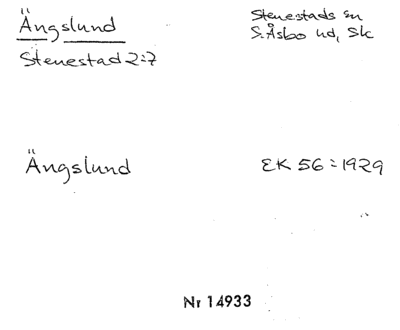 Ängslund
Stenestad 2:7
Stenestads sn
S. Åsbo hd, Sk
Ängslund
EK 56 = 1929
Nr 14933